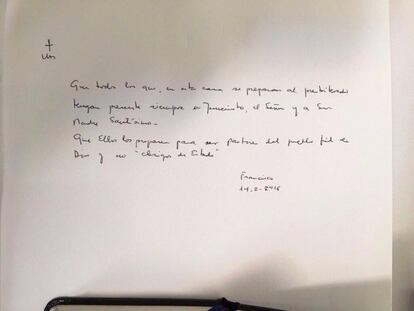 †
Que todos los que, en esta casa se preparan al presbiterado
tengan presente siempre a Jesucristo, el Señor y a Su
Madre Santísima.
Que Ellos los preparen para ser pastores del pueblo fiel de
Dios y no "clérigos de Estado"
Francisco
14-2-2016